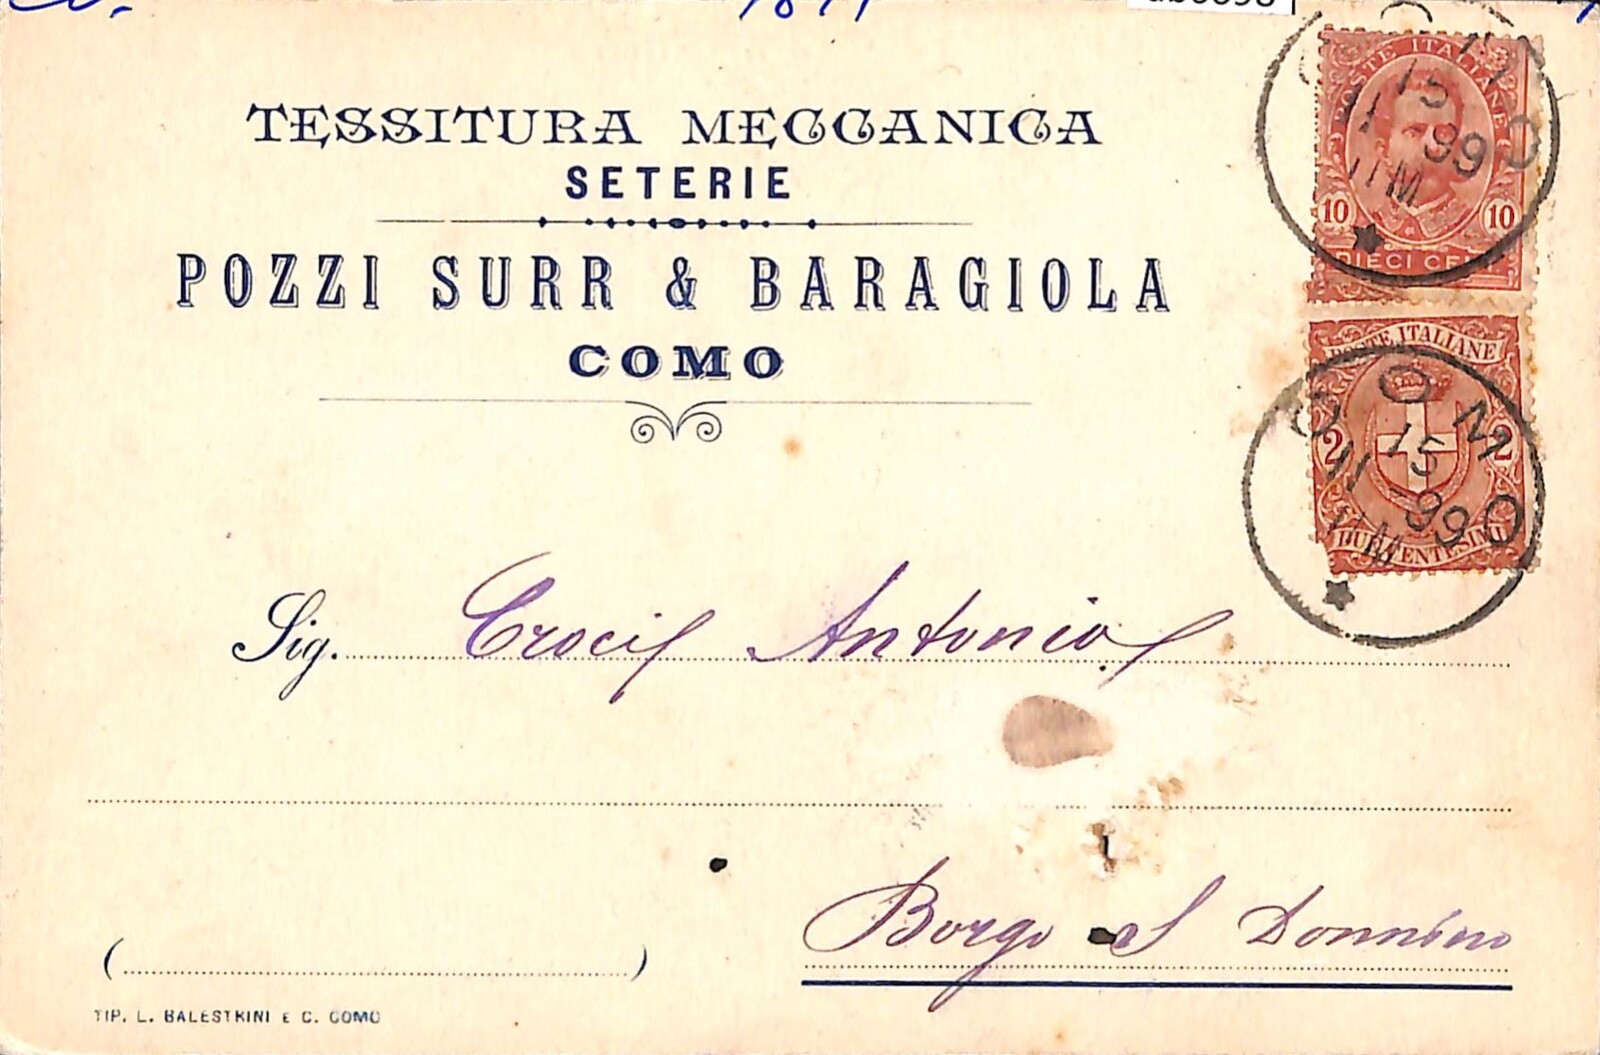 1899
TESSITURA MECCANICA
SETERIE
POZZI SURR & BARAGIOLA
COMO
POSTE ITALIANE
10 10
DIECI CENT
COMO
15
99
11M
POSTE ITALIANE
2 2
DUE CENTESIMI
COMO
15
99
11M
Sig. Crocif Antonio
Borgo S Donnino
TIP. L. BALESTRINI E C. COMO